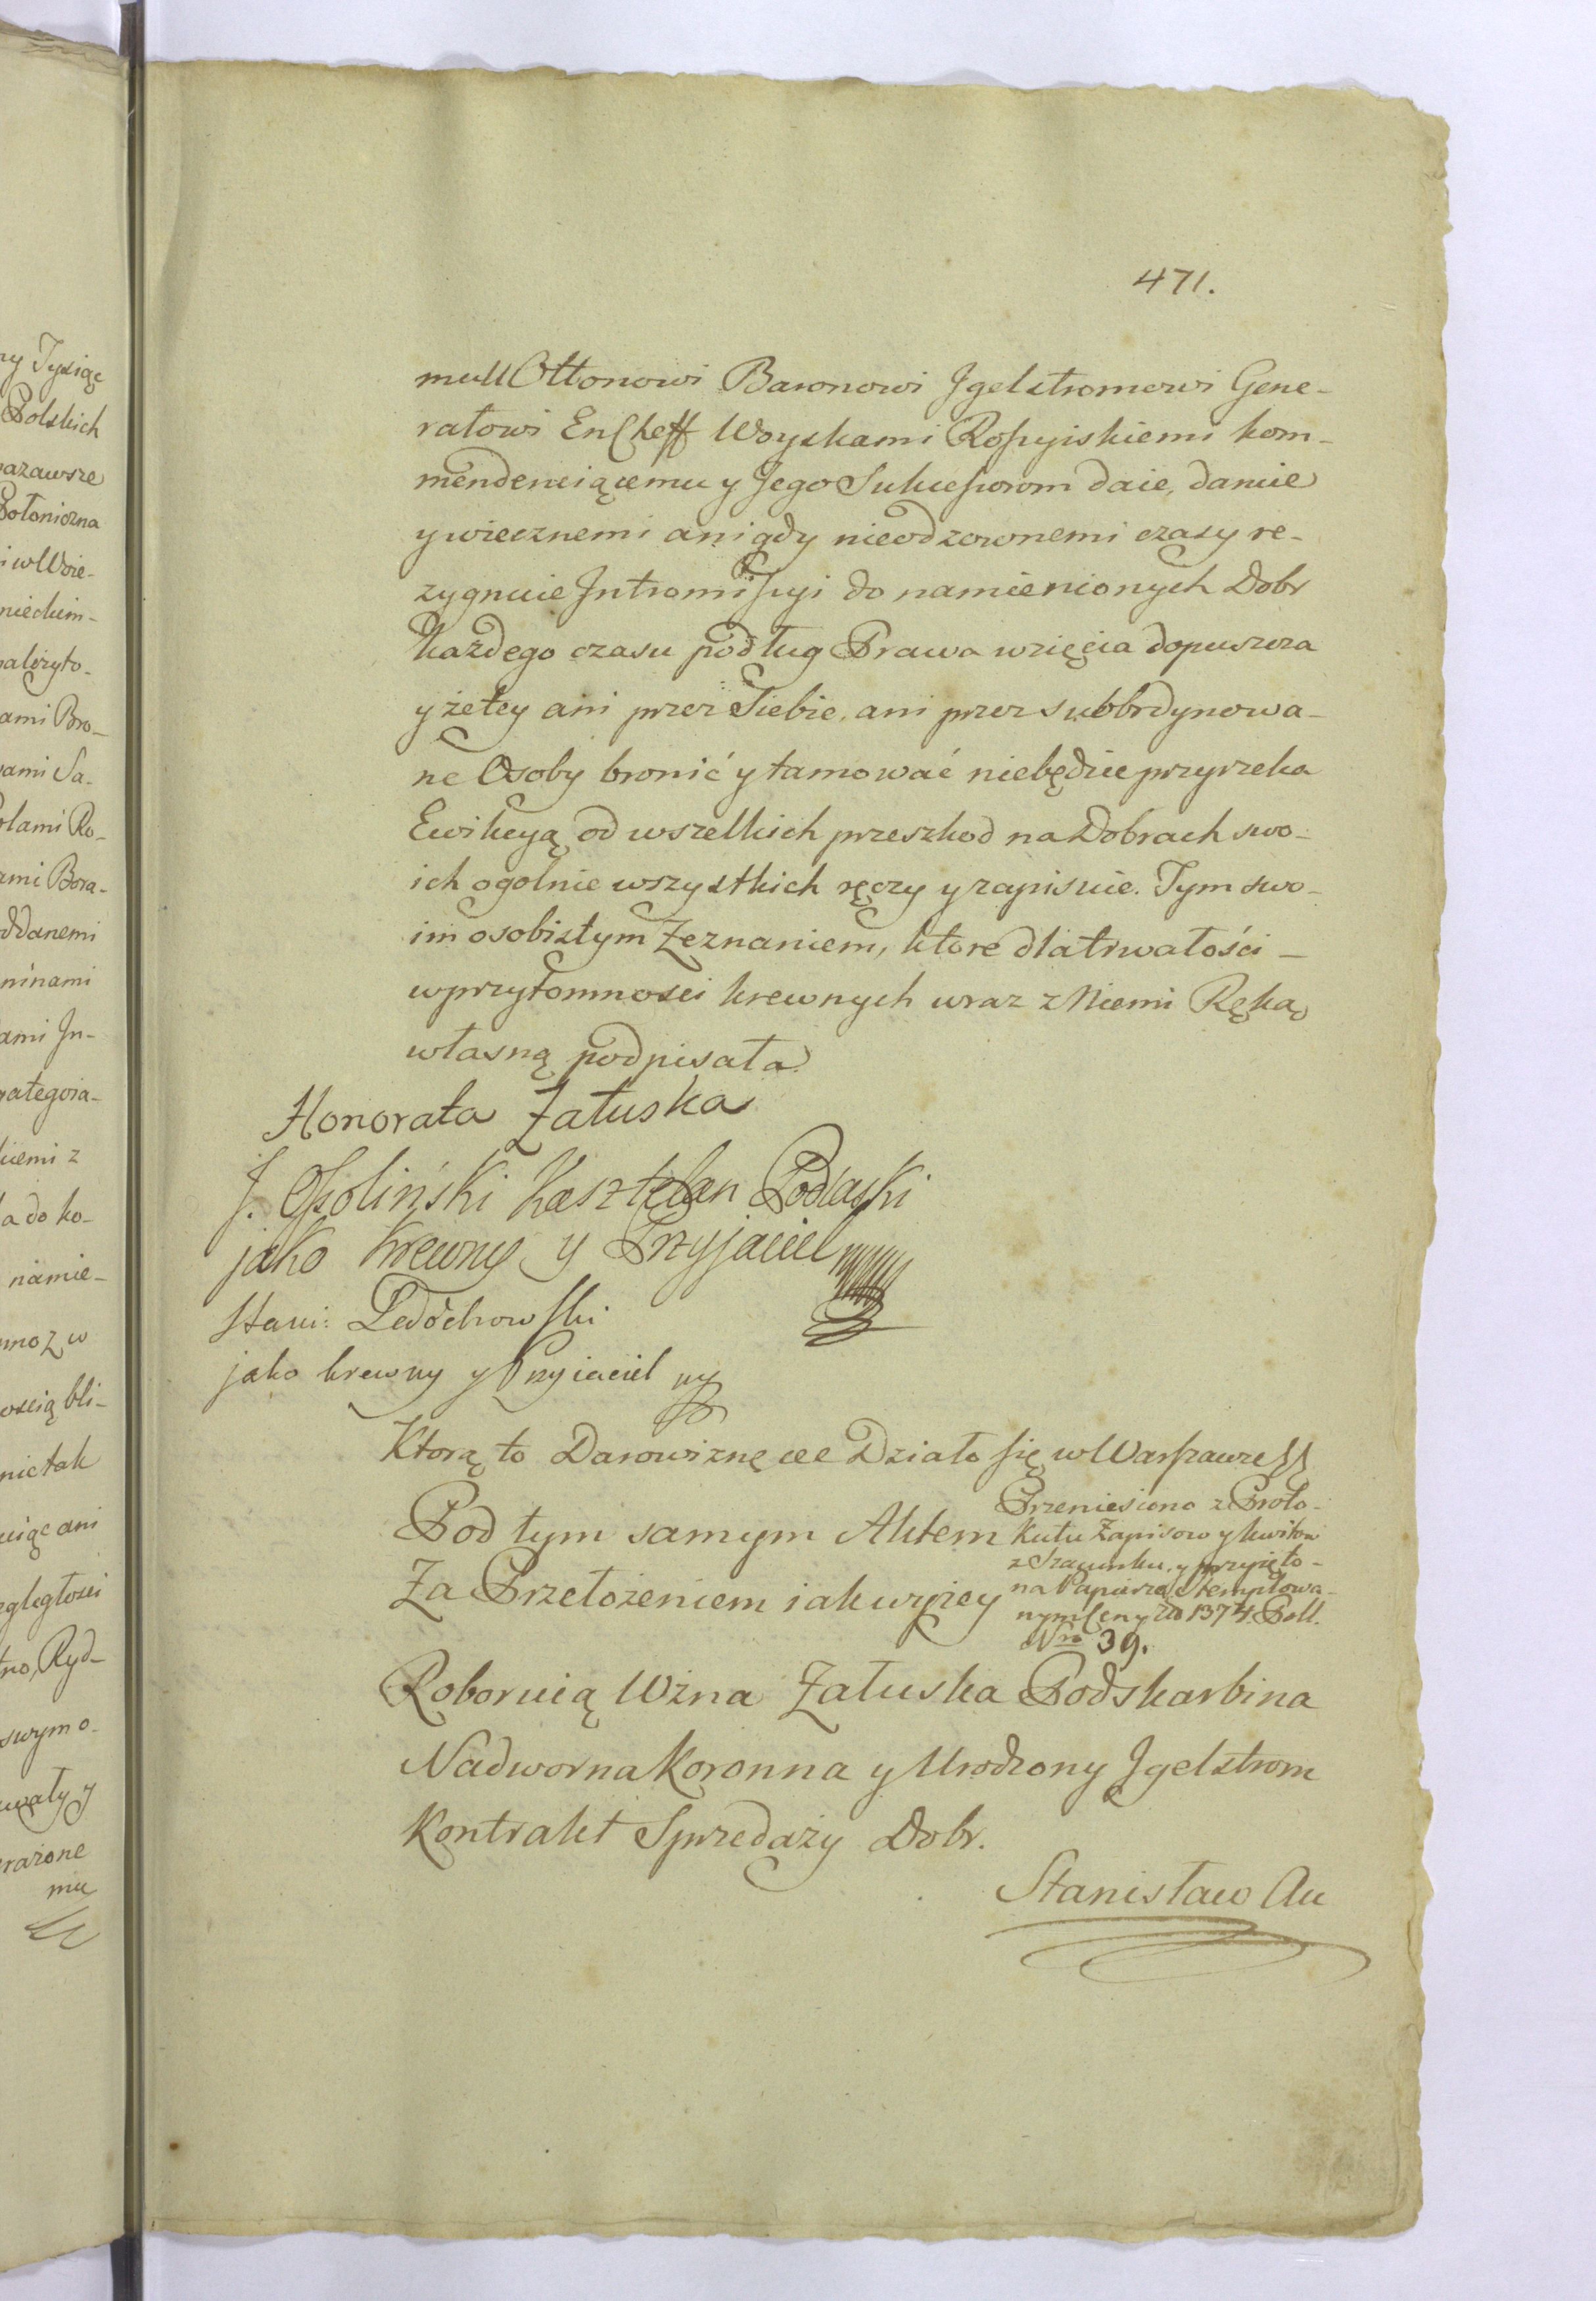 471.
mu U Ottonowi Baronowi Jgelstromowi Gene-
rałowi EnCheff Woyskami Rossyiskiemi kom-
menderuiącemu y Jego Sukcessorom daie, daruie
y wiecznemi a nigdy nieodzownemi czasy re-
zygnuie Intromissyi do namienionych Dobr
każdego czasu podług Prawa wzięcia dopuszcza
y że tey ani przez Siebie, ani przez subbrdynowa-
ne Osoby bronić y tamować niebędzie przyrzeka
Ewikcyą od wszelkich przeszkod na Dobrach swo-
ich ogolnie wszystkich ręczy y zapisuie. Tym swo-
im osobistym Zeznaniem, ktore dla trwałości -
w przytomnosci krewnych wraz z Niemi Ręką
własną podpisała
Honorata Załuska
J. Ossoliński Kasztelan Podlaski
jako Krewny y Przyjaciel mp
Stani: Ledóchowski
jako krewny y Przyiaciel mp
Ktorą to Darowiznę etc Działo się w Warszawie
Pod tym samym Aktem
Za Przełożeniem iak wyżey
Przeniesiono z Proto-
kułu Zapisow y kwitow
z Szacunku y przyięto -
na Papierze Stemplowa-
nym Ceny Zło 1374. Poll.
Nro 39.
Roboruią Wżna Załuska Podskarbina
Nadworna Koronna y Urodzony Jgelstrom
Kontrakt Sprzedaży Dobr.
Stanisław Au
ny Tysiąc
Polskich
Położniczna
i w Woie-
nieckim-
ami Bro-
ami Sa-
olami Ro-
ami Bora-
ddanemi
ninami
ami Jn-
kiemi z
a do ko-
namie-
mnoz w
oscią bli-
nic tak
uiąc ani
zgległosci
tno, Ryd-
swym o-
wały y
erażone
mu